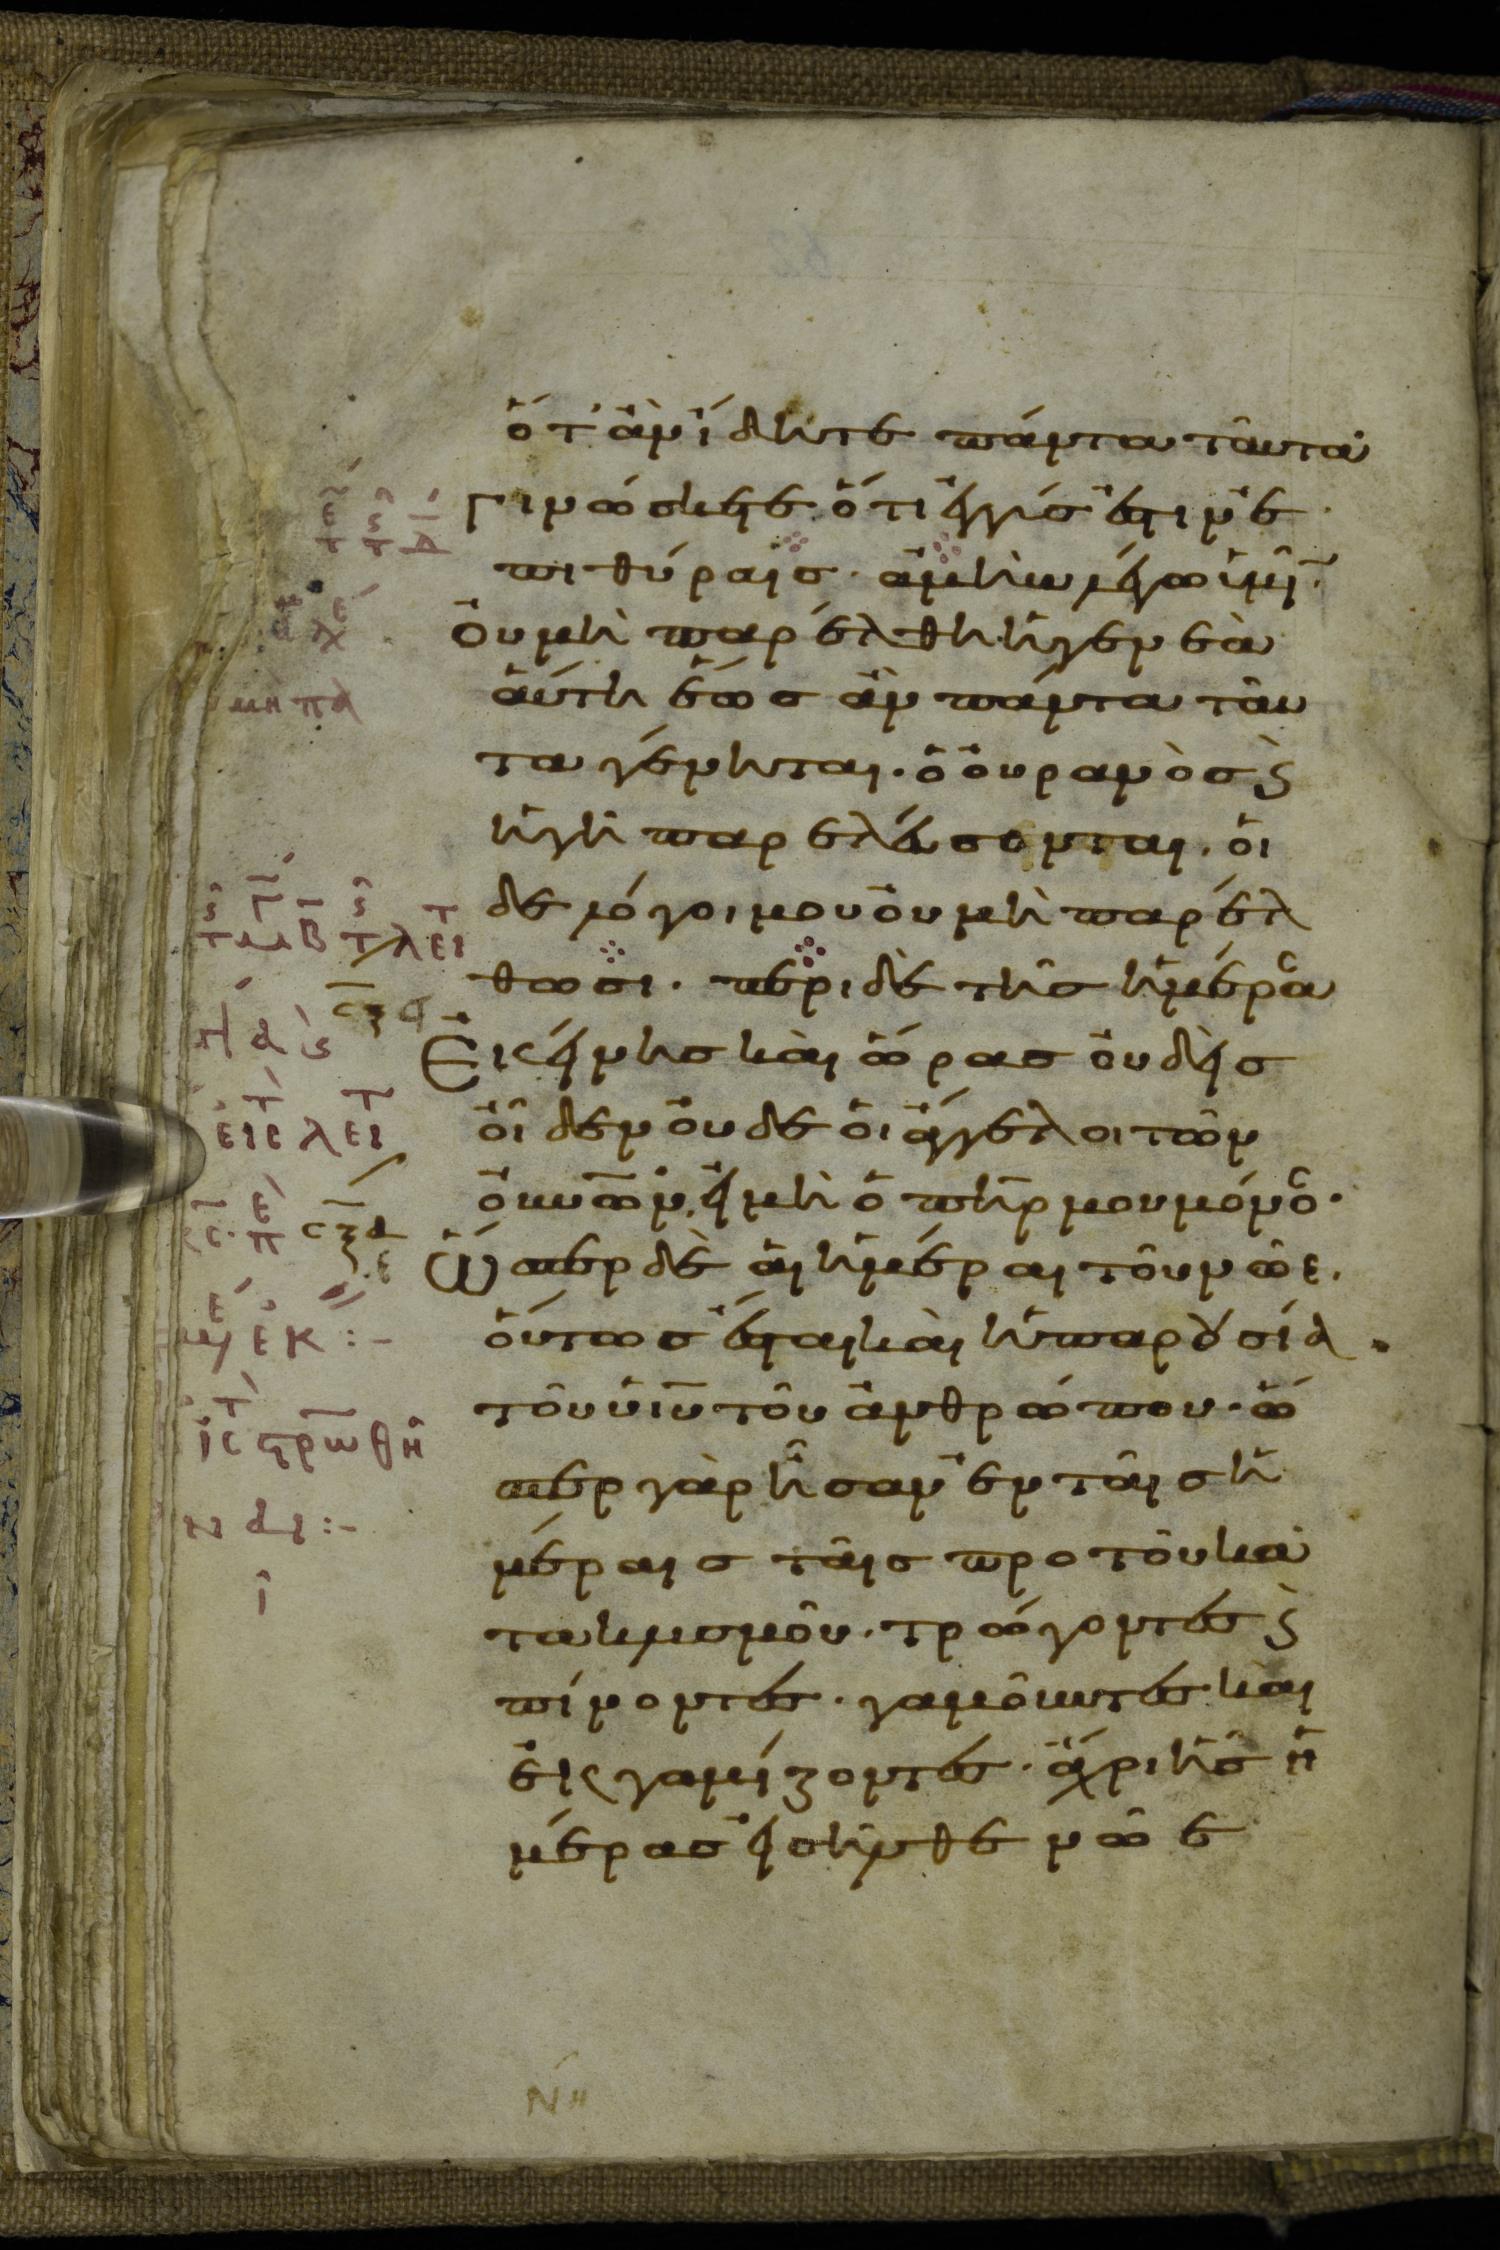 ὅτ' ἂν ἴδητε πάντα ταῦτα
γινώσκετε ὅτι ἐγγύς ἐστιν ἐ
πι θύραις· ἀμὴν λέγω ὑμῖν·
Οὐ μὴ παρέλθη ἡ γενεὰ
αὕτη ἕως ἂν πάντα ταῦ
τα γένηται· ὁ οὐρανὸς ϗ
ἡ γῆ παρελεύσονται· οἱ
δε λόγοι μου οὐ μὴ παρέλ
θωσι· περι δὲ τῆς ἡμέρα
Εκείνης καὶ ὥρας οὐδεὶς
οἶδεν οὐδε οἱ ἄγγελοι τῶν
οὐνῶν, εἰ μὴ ὁ πηρ μου μόνο·
Ὥσπερ δὲ αἱ ἡμέραι τοῦ νῶε,
οὕτως ἔσται καὶ ἡ παρουσία
τοῦ υἱῦ τοῦ ἀνθρώπου· ὥ
σπερ γὰρ ἦσαν ἐν ταῖς ἡ
μέραις ταῖς προ τοῦ κα
τακλυσμοῦ· τρώγοντες ϗ
πίνοντες· γαμοῦντες καὶ
ἐκγαμίζοντες· ἄχρι ἧς ἡ
μέρας εἰσῆλθε νῶε
ΝΗ